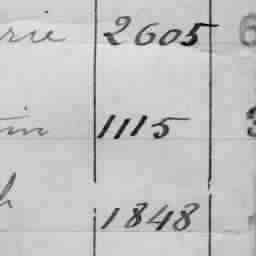 rie 2605 6
tin 1115 3
h 1848